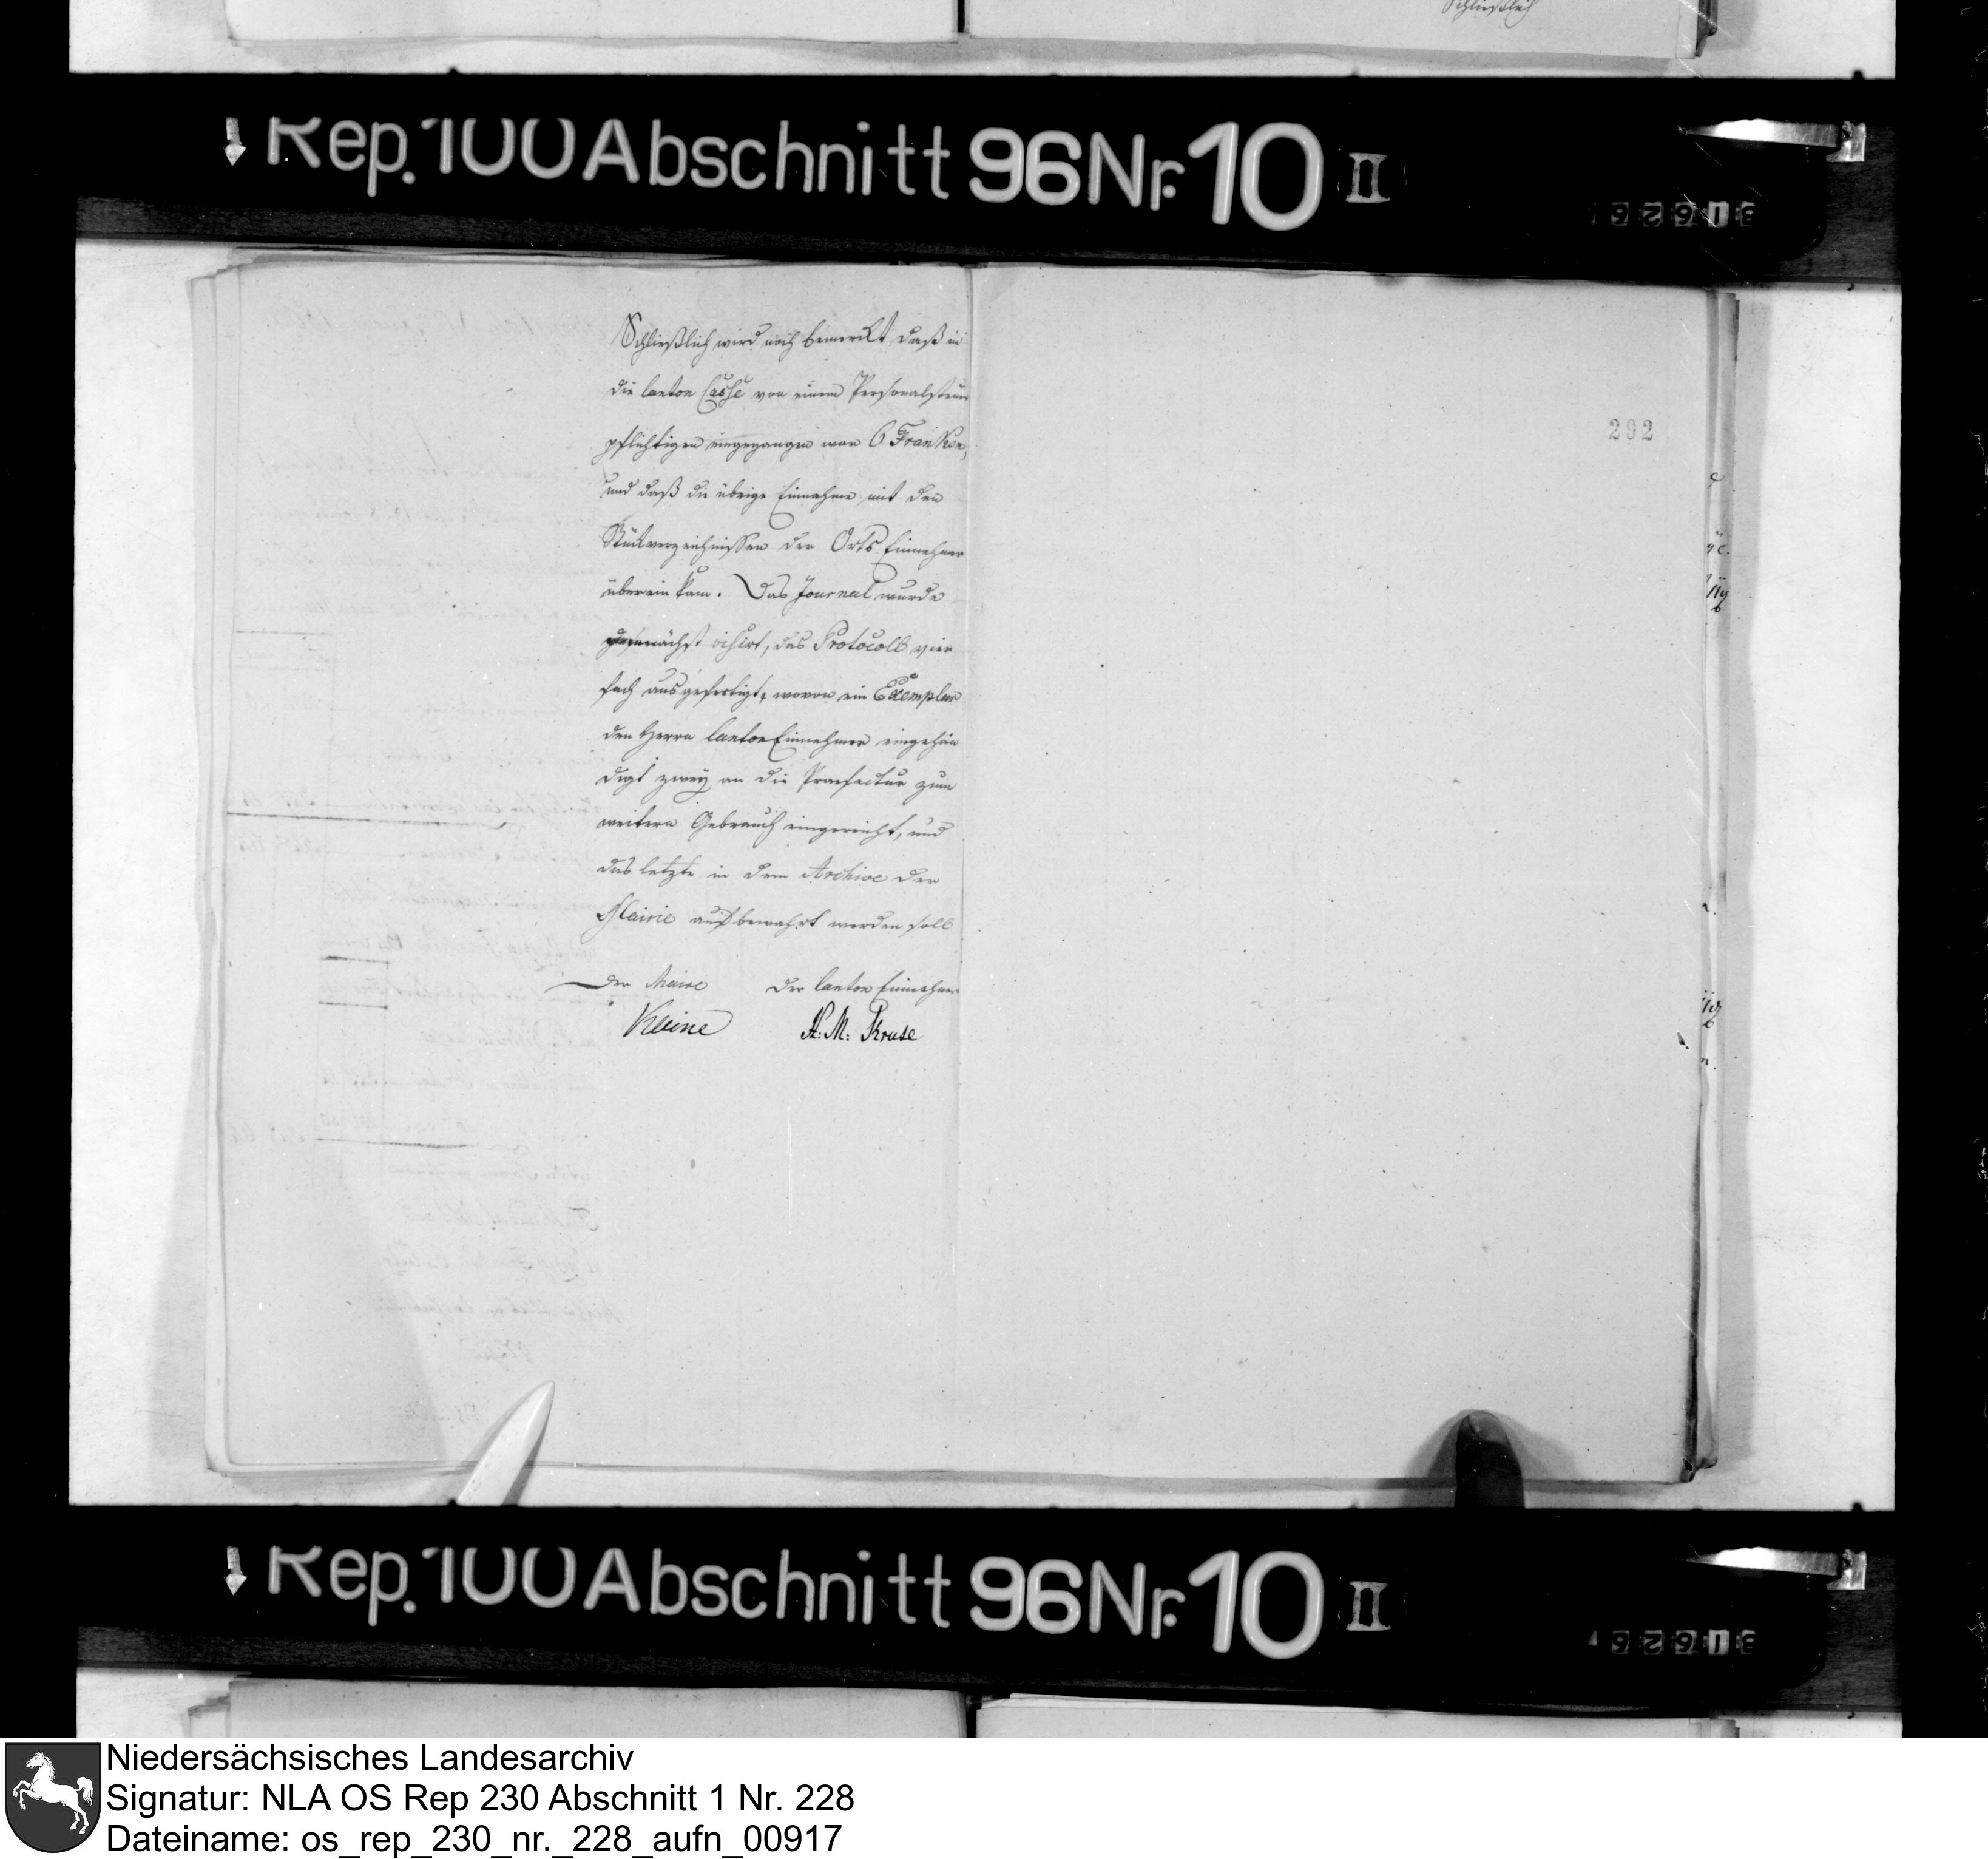 Schließlich
Rep. 100 Abschnitt 96 Nr. 10 II
31626
Schließlich wird noch bemerkt daß in
die Canton Casse von einem Personalsteuer
pflichtigen eingegangen war 6 Franken,
und daß die übrige Einnahme mit den
Stückverzeichnissen der Orts Einnehmer
überein kam. Das Journal wurde
demnächst visirt, das Protocoll vier
fach ausgefertigt, wovon ein Exemplar
den Herrn Canton Einnehmer eingehän
digt zwey an die Praefectur zum
weitern Gebrauch eingereicht, und
das letzte in dem Archive der
Mairie aufbewahrt werden soll
Der Maire Der Canton Einnehmer
Kleine H. M. Kruse
292
Rep. 100 Abschnitt 96 Nr. 10 II
31626
Niedersächsisches Landesarchiv
Signatur: NLA OS Rep 230 Abschnitt 1 Nr. 228
Dateiname: os_rep_230_nr._228_aufn_00917